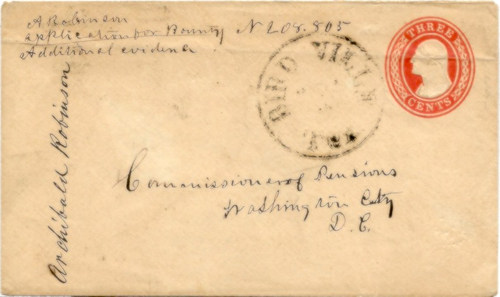 A Robinson
application for Bounty N 208.805
Additional evidence
THREE
CENTS
BIRDVILLE
Archibald Robinson
Commissioner of Pensions
Washington City
D. C.